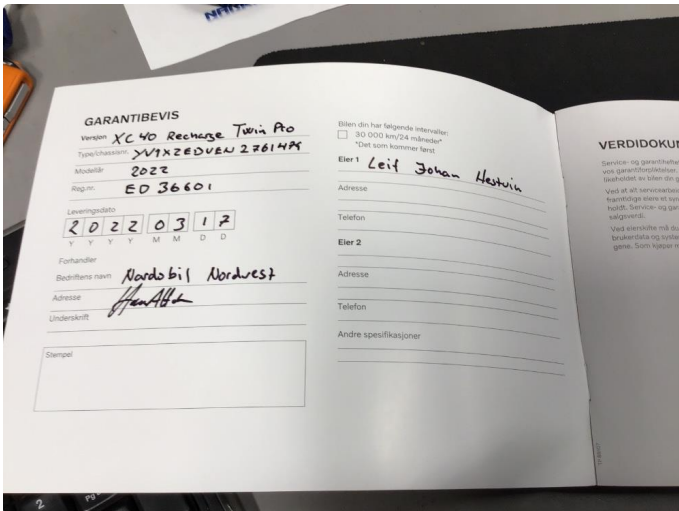 GARANTIBEVIS
Versjon XC 40 Recharge Twin Pro
Type/chassisnr. YV1XZEDVEN2761475
Modellår 2022
Reg.nr. ED 36601
Leveringsdato
2 0 2 2 0 3 1 7
Y Y Y Y M M D D
Forhandler
Bedriftens navn Nardobil Nordvest
Adresse
Underskrift
Stempel
Bilen din har følgende intervaller:
30 000 km/24 måneder*
*Det som kommer først
Eier 1 Leif Johan Hestvin
Adresse
Telefon
Eier 2
Adresse
Telefon
Andre spesifikasjoner
VERDIDOKU
Service- og garantihefte
vos garantiforpliktelser.
likeholdet av bilen din g
Ved at alt servicearbei
framtidige eiere et sys
holdt. Service- og gar
salgsverdi.
Ved eierskifte må du
brukerdata og system
gene. Som kjøper m
2